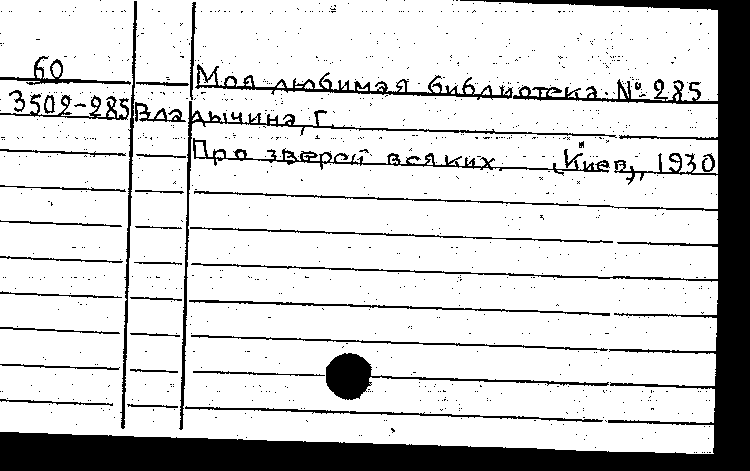 60 Моя любимая библиотека. № 285
3502-285 Владычина, Г.
Про зверей всяких. "Киев", 1930